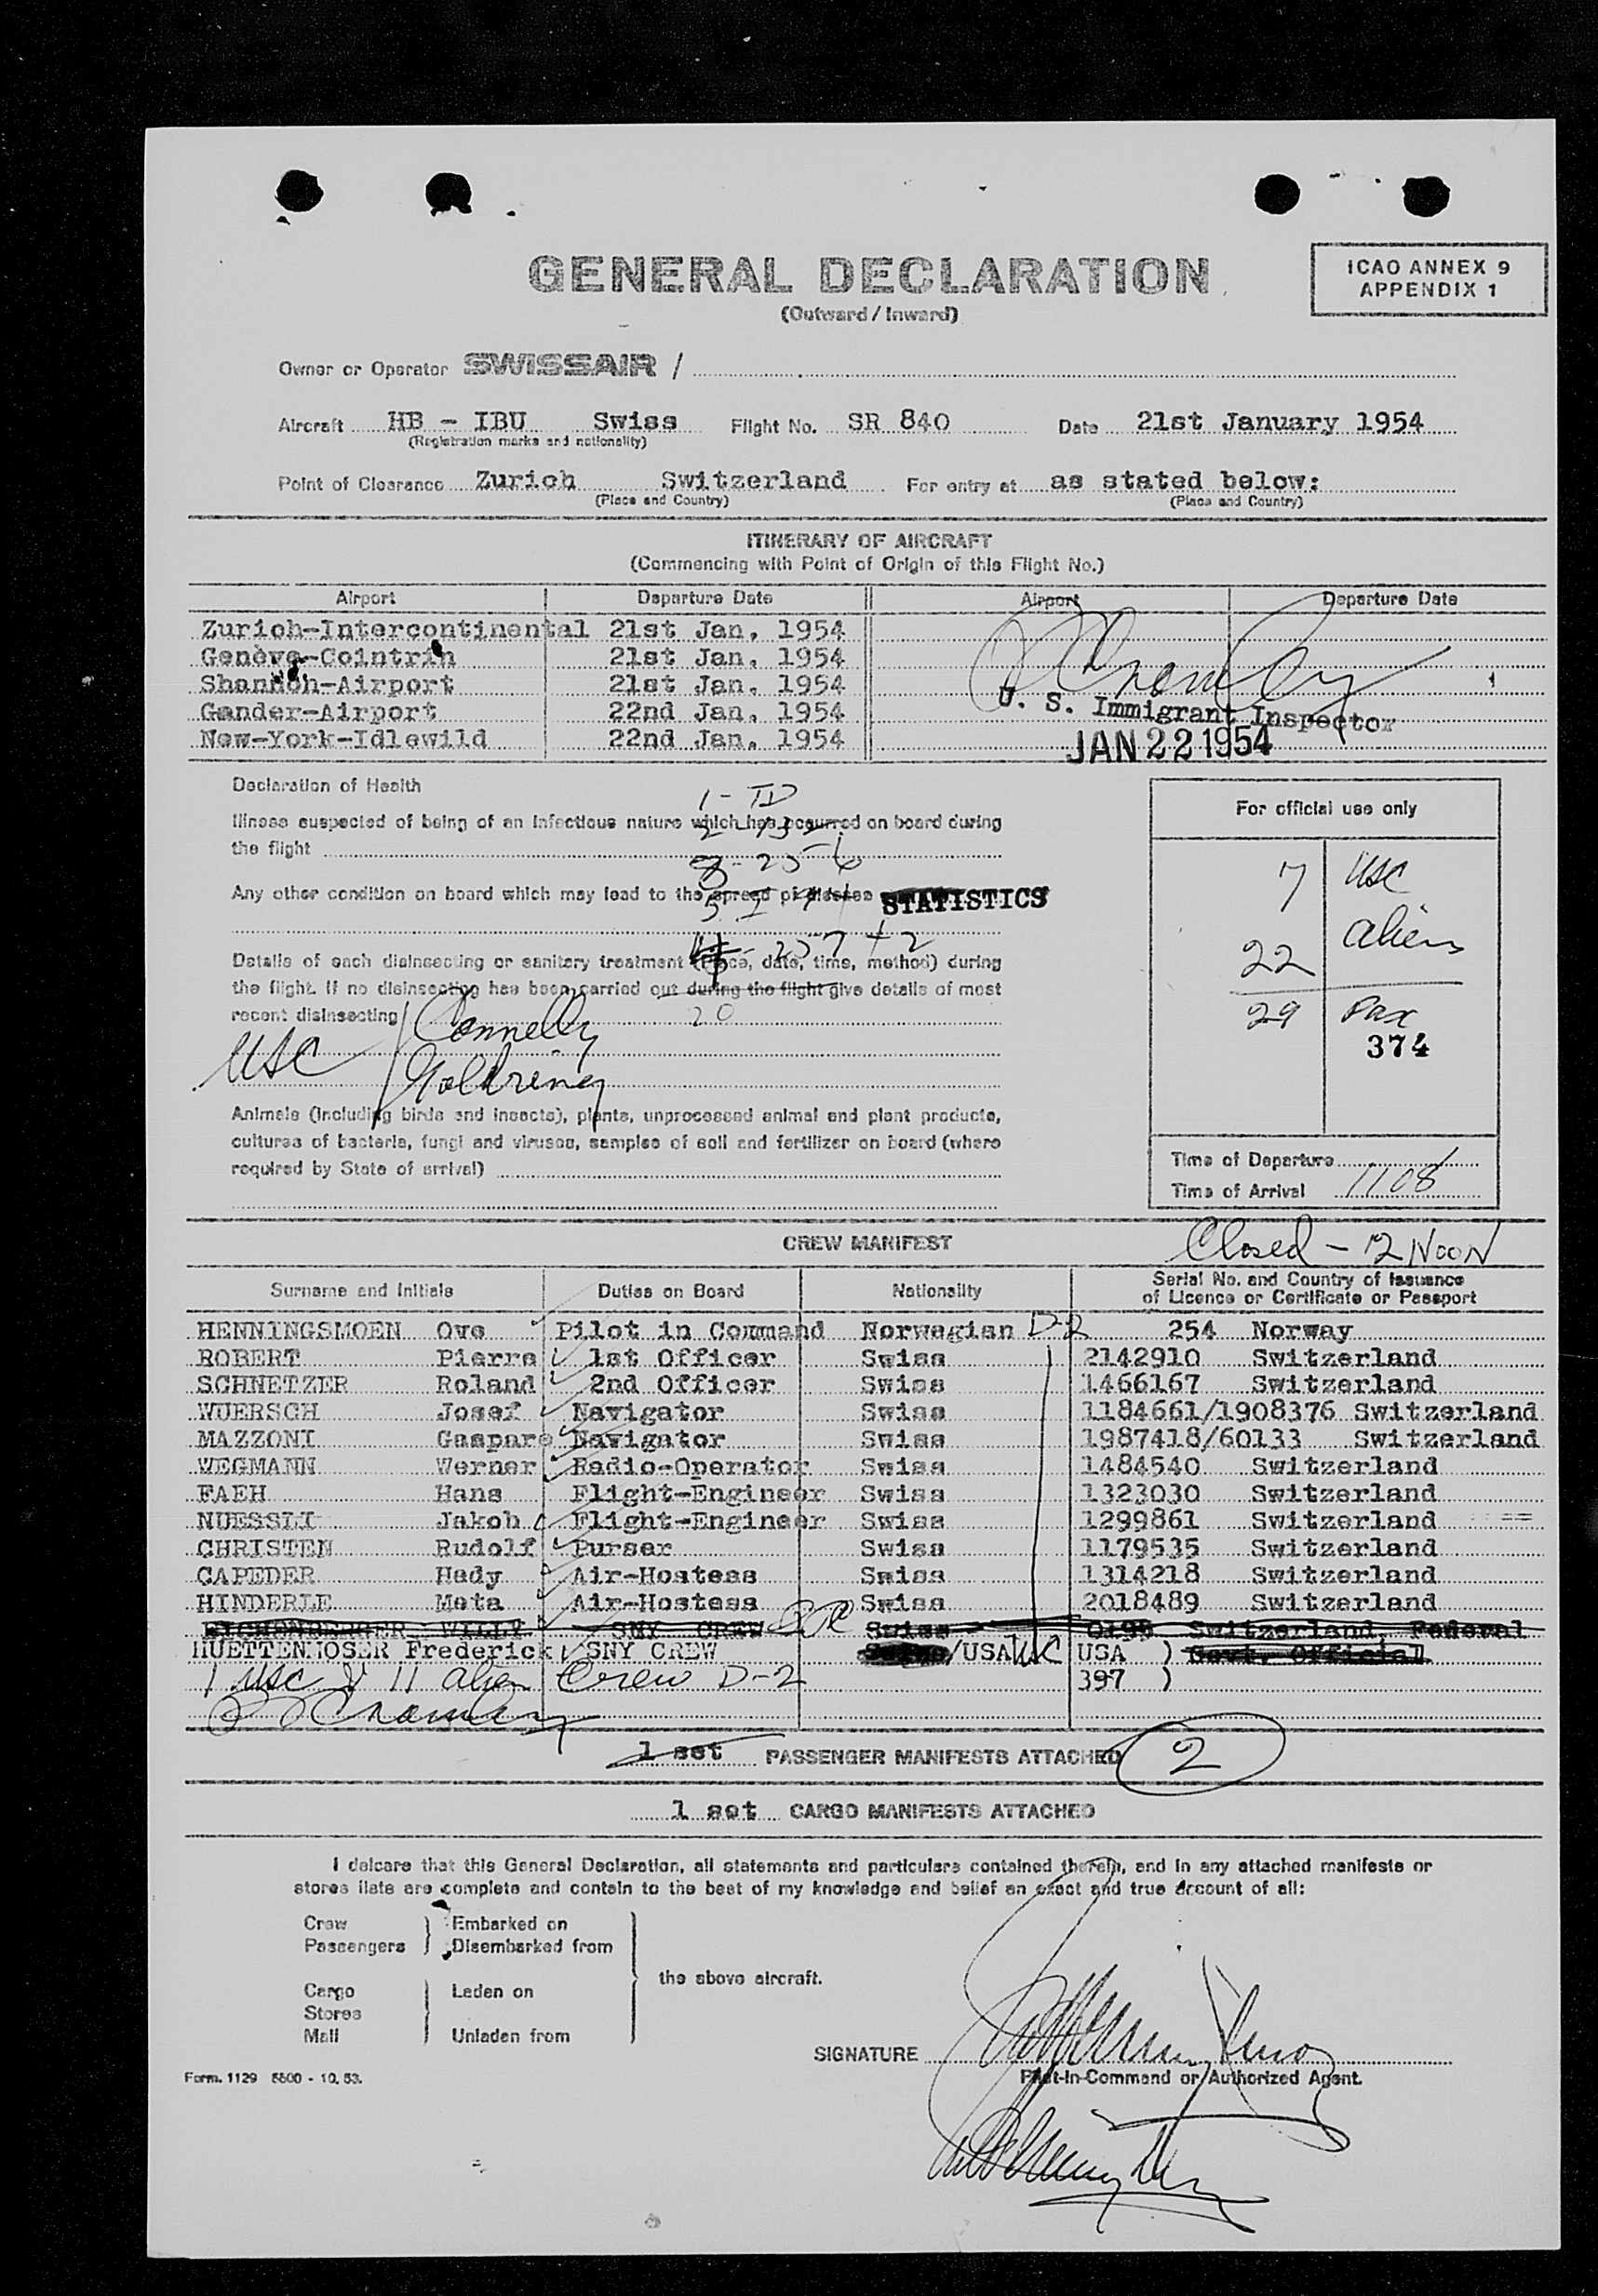 GENERAL DECLARATION
(Outward / Inward)
ICAO ANNEX 9
APPENDIX 1
Owner or Operator SWISSAIR /
Aircraft HB - IBU Swiss Flight No. SR 840 Date 21st January 1954
(Registration marks and nationality)
Point of Clearance Zurich Switzerland For entry at as stated below:
(Place and Country) (Place and Country)
ITINERARY OF AIRCRAFT
(Commencing with Point of Origin of this Flight No.)
Airport Departure Date Airport Departure Date
Zurich-Intercontinental 21st Jan. 1954
Genève-Cointrin 21st Jan. 1954
Shannon-Airport 21st Jan. 1954
Gander-Airport 22nd Jan. 1954
New-York-Idlewild 22nd Jan. 1954
U. S. Immigrant Inspector
JAN 22 1954
Declaration of Health
Illness suspected of being of an infectious nature which has occurred on board during
the flight
Any other condition on board which may lead to the spread of disease STATISTICS
Details of each disinsecting or sanitary treatment (place, date, time, method) during
the flight. If no disinsecting has been carried out during the flight give details of most
recent disinsecting
20
USC Connelly
Goldring
Animals (including birds and insects), plants, unprocessed animal and plant products,
cultures of bacteria, fungi and viruses, samples of soil and fertilizer on board (where
required by State of arrival)
For official use only
7 USC
22 aliens
29 Pax
374
Time of Departure
Time of Arrival 1108
CREW MANIFEST Closed - 12 NOON
Surname and Initials Duties on Board Nationality Serial No. and Country of Issuance
of Licence or Certificate or Passport
HENNINGSMOEN Ove Pilot in Command Norwegian D-2 254 Norway
ROBERT Pierre 1st Officer Swiss 2142910 Switzerland
SCHNETZER Roland 2nd Officer Swiss 1466167 Switzerland
WUERSCH Josef Navigator Swiss 1184661/1908376 Switzerland
MAZZONI Gaspare Navigator Swiss 1987418/60133 Switzerland
WEGMANN Werner Radio-Operator Swiss 1484540 Switzerland
FAEH Hans Flight-Engineer Swiss 1323030 Switzerland
NUESSLI Jakob Flight-Engineer Swiss 1299861 Switzerland
CHRISTEN Rudolf Purser Swiss 1179535 Switzerland
CAPEDER Hedy Air-Hostess Swiss 1314218 Switzerland
HINDERLE Meta Air-Hostess Swiss 2018489 Switzerland
EICHENBERGER WILLY SNY CREW Swiss 0195 Switzerland, Federal
HUETTENMOSER Frederick SNY CREW /USA USC USA ) Govt. Official
1 USC & 11 alien Crew D-2 397 )
1 set PASSENGER MANIFESTS ATTACHED 2
1 set CARGO MANIFESTS ATTACHED
I delcare that this General Declaration, all statements and particulars contained therein, and in any attached manifests or
stores lists are complete and contain to the best of my knowledge and belief an exact and true account of all:
Crew Embarked on
Passengers Disembarked from
the above aircraft.
Cargo Laden on
Stores
Mail Unladen from
SIGNATURE
Pilot-in-Command or Authorized Agent.
Form. 1129 5500 - 10. 53.